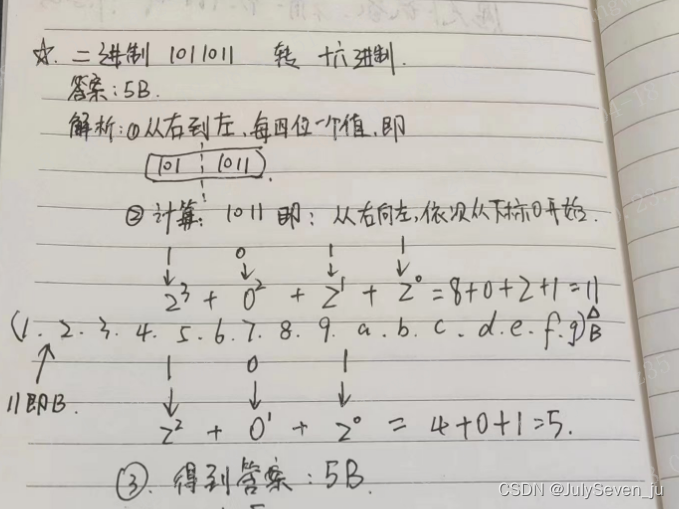 ☆. 二进制 1011011 转 十六进制.
答案:5B.
解析:①从右到左,每四位一个值,即
101 1011.
②计算: 1011 即: 从右向左,依次从下标0开始.
1 0 1 1
↓ ↓ ↓ ↓
2³ + 0² + 2¹ + 2⁰ = 8+0+2+1=11
(1. 2. 3. 4. 5. 6. 7. 8. 9. a. b. c. d. e. f. g) B
1 0 1
11即B.
↓ ↓ ↓
2² + 0¹ + 2⁰ = 4+0+1=5.
③. 得到答案:5B.
CSDN @JulySeven_ju